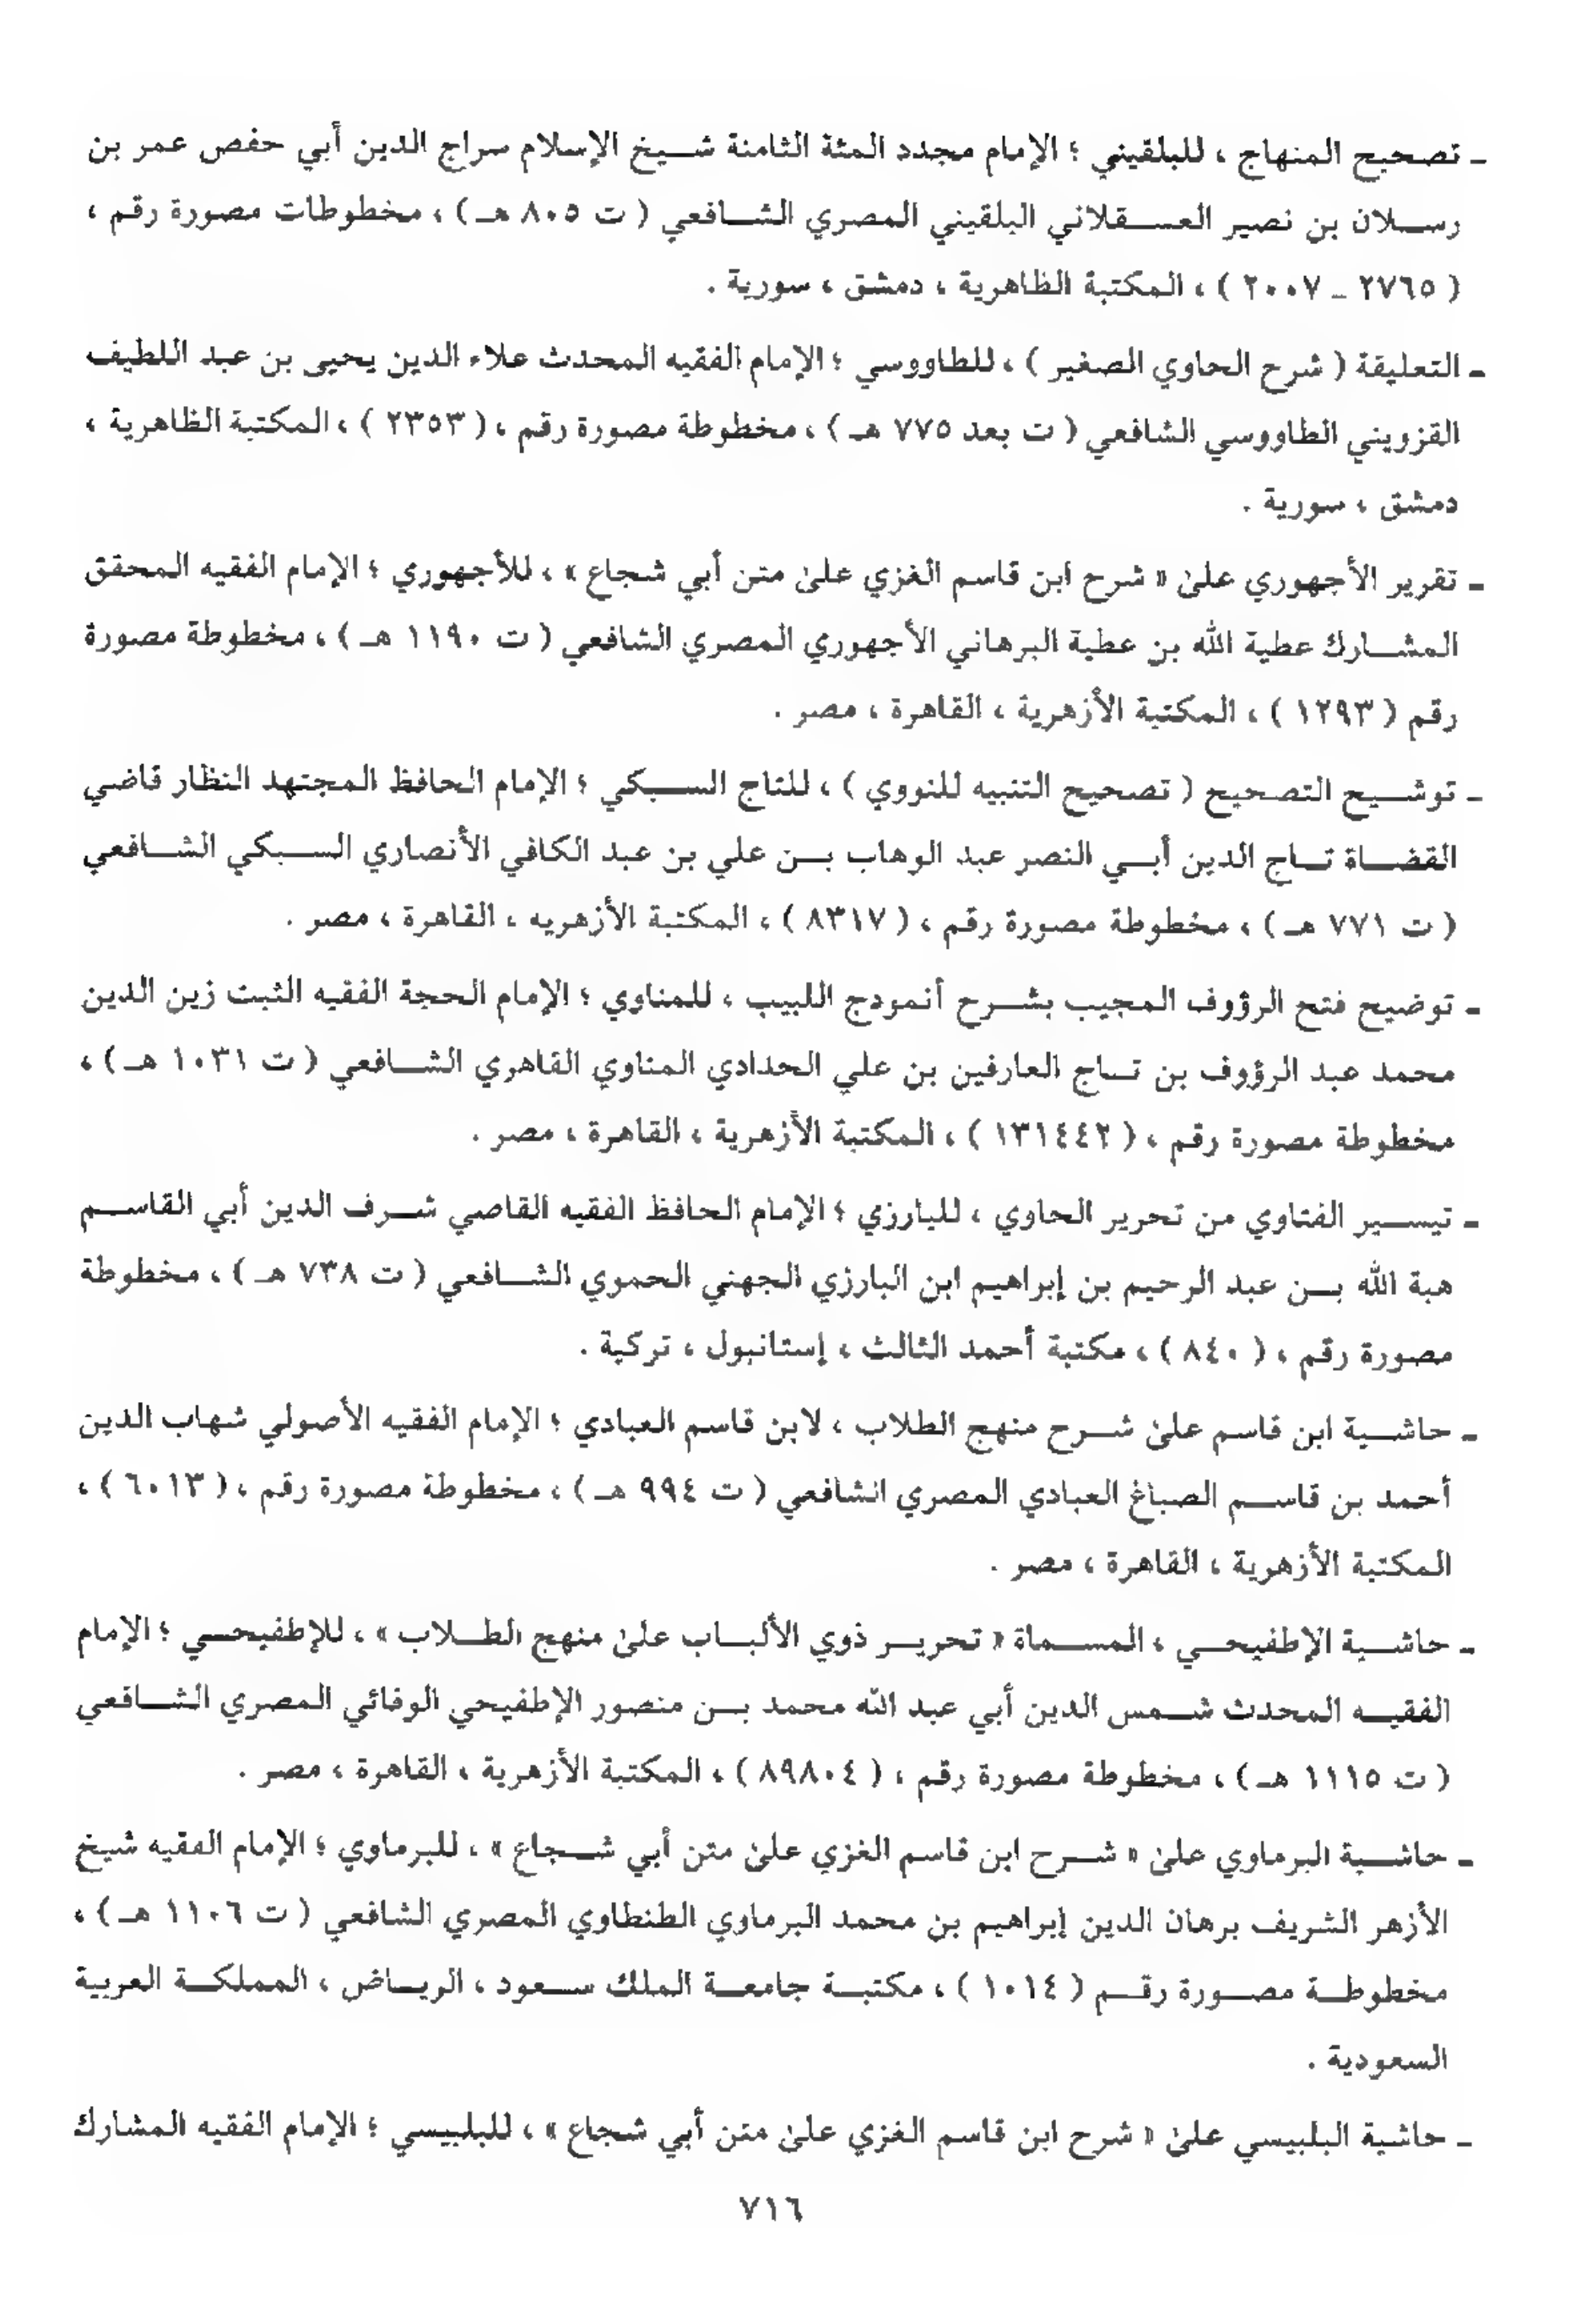 ـ تصحيح المنهاج ، للبلقيني ؛ الإمام مجدد المئة الثامنة شيخ الإسلام سراج الدين أبي حفص عمر بن
رسلان بن نصير العسقلاني البلقيني المصري الشافعي ( ت ٨٠٥ هـ ) ، مخطوطات مصورة رقم ،
( ٢٧٦٥ ـ ٢٠٠٧ ) ، المكتبة الظاهرية ، دمشق ، سورية .
ـ التعليقة ( شرح الحاوي الصغير ) ، للطاووسي ؛ الإمام الفقيه المحدث علاء الدين يحيى بن عبد اللطيف
القزويني الطاووسي الشافعي ( ت بعد ٧٧٥ هـ ) ، مخطوطة مصورة رقم ، ( ٢٣٥٣ ) ، المكتبة الظاهرية ،
دمشق ، سورية .
ـ تقرير الأجهوري علىٰ « شرح ابن قاسم الغزي علىٰ متن أبي شجاع » ، للأجهوري ؛ الإمام الفقيه المحقق
المشارك عطية الله بن عطية البرهاني الأجهوري المصري الشافعي ( ت ١١٩٠ هـ ) ، مخطوطة مصورة
رقم ( ١٢٩٣ ) ، المكتبة الأزهرية ، القاهرة ، مصر .
ـ توشيح التصحيح ( تصحيح التنبيه للنووي ) ، للتاج السبكي ؛ الإمام الحافظ المجتهد النظار قاضي
القضاة تاج الدين أبي النصر عبد الوهاب بن علي بن عبد الكافي الأنصاري السبكي الشافعي
( ت ٧٧١ هـ ) ، مخطوطة مصورة رقم ، ( ٨٣١٧ ) ، المكتبة الأزهريه ، القاهرة ، مصر .
ـ توضيح فتح الرؤوف المجيب بشرح أنموذج اللبيب ، للمناوي ؛ الإمام الحجة الفقيه الثبت زين الدين
محمد عبد الرؤوف بن تاج العارفين بن علي الحدادي المناوي القاهري الشافعي ( ت ١٠٣١ هـ ) ،
مخطوطة مصورة رقم ، ( ١٣١٤٤٢ ) ، المكتبة الأزهرية ، القاهرة ، مصر .
ـ تيسير الفتاوي من تحرير الحاوي ، للبارزي ؛ الإمام الحافظ الفقيه القاصي شرف الدين أبي القاسم
هبة الله بن عبد الرحيم بن إبراهيم ابن البارزي الجهني الحموي الشافعي ( ت ٧٣٨ هـ ) ، مخطوطة
مصورة رقم ، ( ٨٤٠ ) ، مكتبة أحمد الثالث ، إستانبول ، تركية .
ـ حاشية ابن قاسم علىٰ شرح منهج الطلاب ، لابن قاسم العبادي ؛ الإمام الفقيه الأصولي شهاب الدين
أحمد بن قاسم الصباغ العبادي المصري الشافعي ( ت ٩٩٤ هـ ) ، مخطوطة مصورة رقم ، ( ٦٠١٣ ) ،
المكتبة الأزهرية ، القاهرة ، مصر .
ـ حاشية الإطفيحي ، المسماة « تحرير ذوي الألباب علىٰ منهج الطلاب » ، للإطفيحي ؛ الإمام
الفقيه المحدث شمس الدين أبي عبد الله محمد بن منصور الإطفيحي الوفائي المصري الشافعي
( ت ١١١٥ هـ ) ، مخطوطة مصورة رقم ، ( ٨٩٨٠٤ ) ، المكتبة الأزهرية ، القاهرة ، مصر .
ـ حاشية البرماوي علىٰ « شرح ابن قاسم الغزي علىٰ متن أبي شجاع » ، للبرماوي ؛ الإمام الفقيه شيخ
الأزهر الشريف برهان الدين إبراهيم بن محمد البرماوي الطنطاوي المصري الشافعي ( ت ١١٠٦ هـ ) ،
مخطوطة مصورة رقم ( ١٠١٤ ) ، مكتبة جامعة الملك سعود ، الرياض ، المملكة العربية
السعودية .
ـ حاشية البلبيسي علىٰ « شرح ابن قاسم الغزي علىٰ متن أبي شجاع » ، للبلبيسي ؛ الإمام الفقيه المشارك
٧١٦